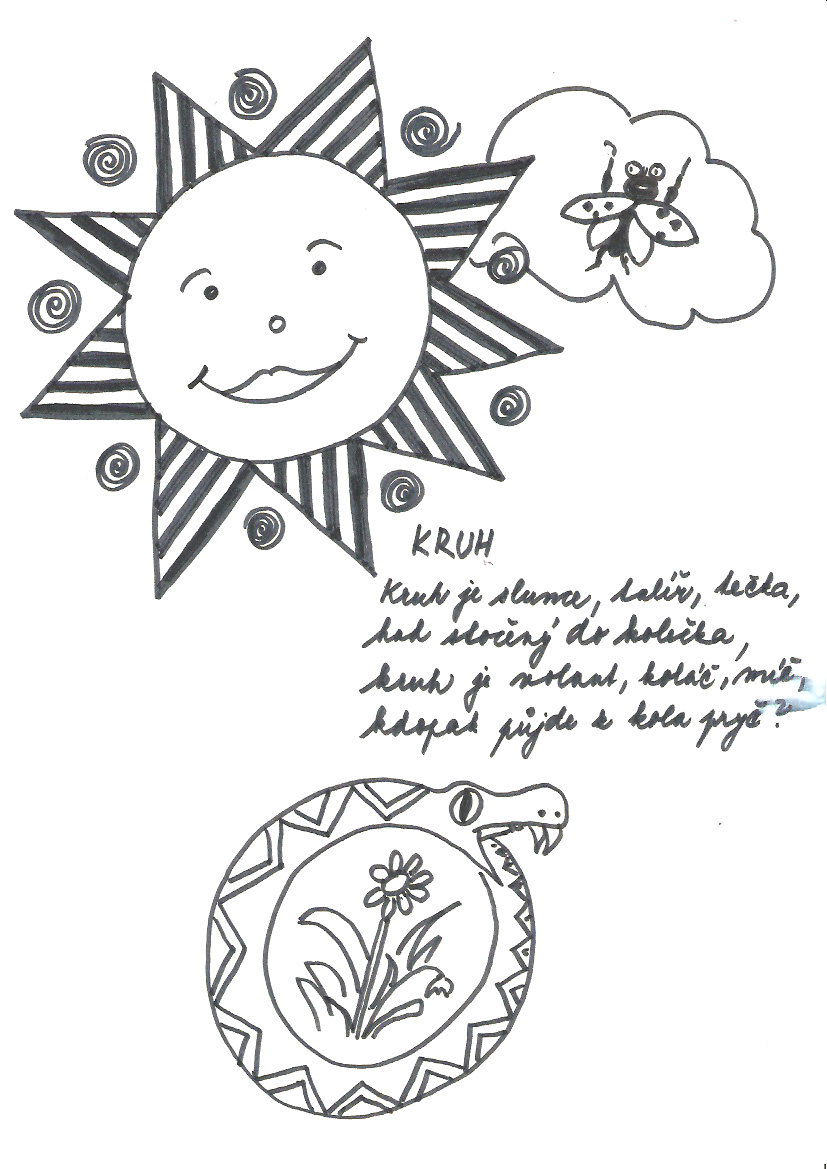 KRUH
Kruh je slunce, talíř, tečka,
had stočený do kolečka,
kruh je volant, koláč, míč,
kdopak půjde z kola pryč?